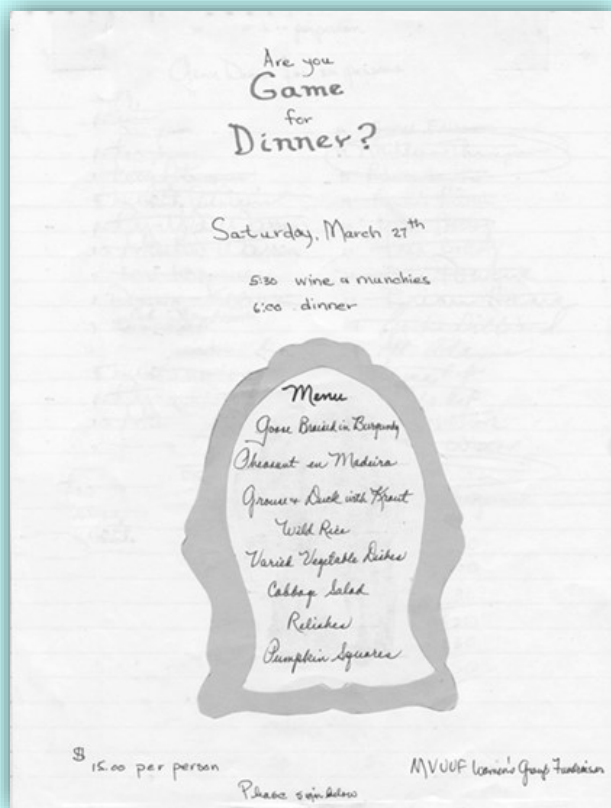 Are you
Game
for
Dinner?
Saturday, March 27th
5:30 wine & munchies
6:00 dinner
Menu
Goose Braised in Burgundy
Pheasant en Madeira
Grouse & Duck with Kraut
Wild Rice
Varied Vegetable Dishes
Cabbage Salad
Relishes
Pumpkin Squares
$ 15.00 per person
MVUUF Women's Group Fundraiser
Please sign below